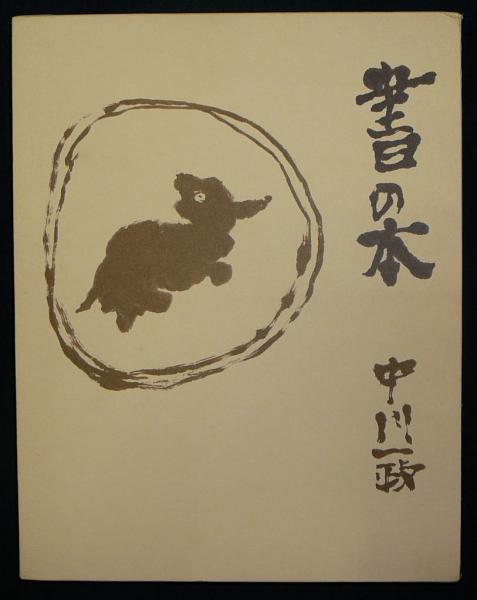 書の本
中川一政